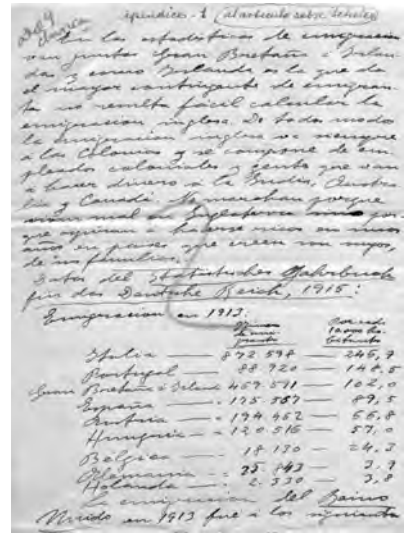 apendice - 1 (al artículo sobre
En las estadísticas de emigración
van juntas Gran Bretaña e Irlan-
da y como Irlanda es la que da
el mayor contingente de emigran-
tes no resulta fácil calcular la
emigracion inglesa. De todos modos
la emigracion inglesa va siempre
a las Colonias y se compone de em-
pleados coloniales y gente que van
a hacer dinero a la India, Austra-
lia y Canadá. Se marchan porque
en Inglaterra por-
que aspiran a hacerse ricos en unos
años en países que creen
de sus familias.
Datos del Statistisches Jahrbuch
für das Deutsche Reich, 1915:
Emigracion en 1913.
Número de emigrantes Por cada 10.000 habitantes
Italia — 872 598 — 246,7
Portugal — 88 920 — 148,5
Gran Bretaña e Irlanda 469 571 — 102,0
España — 175 557 — 89,5
Austria — 194 462 — 66,8
Hungria — 120 516 — 57,0
Belgica — 18 130 — 24,3
Alemania — 25 843 — 3,9
Holanda — 2 330 — 3,8
La emigracion del Reino
Unido en 1913 fué a los siguientes